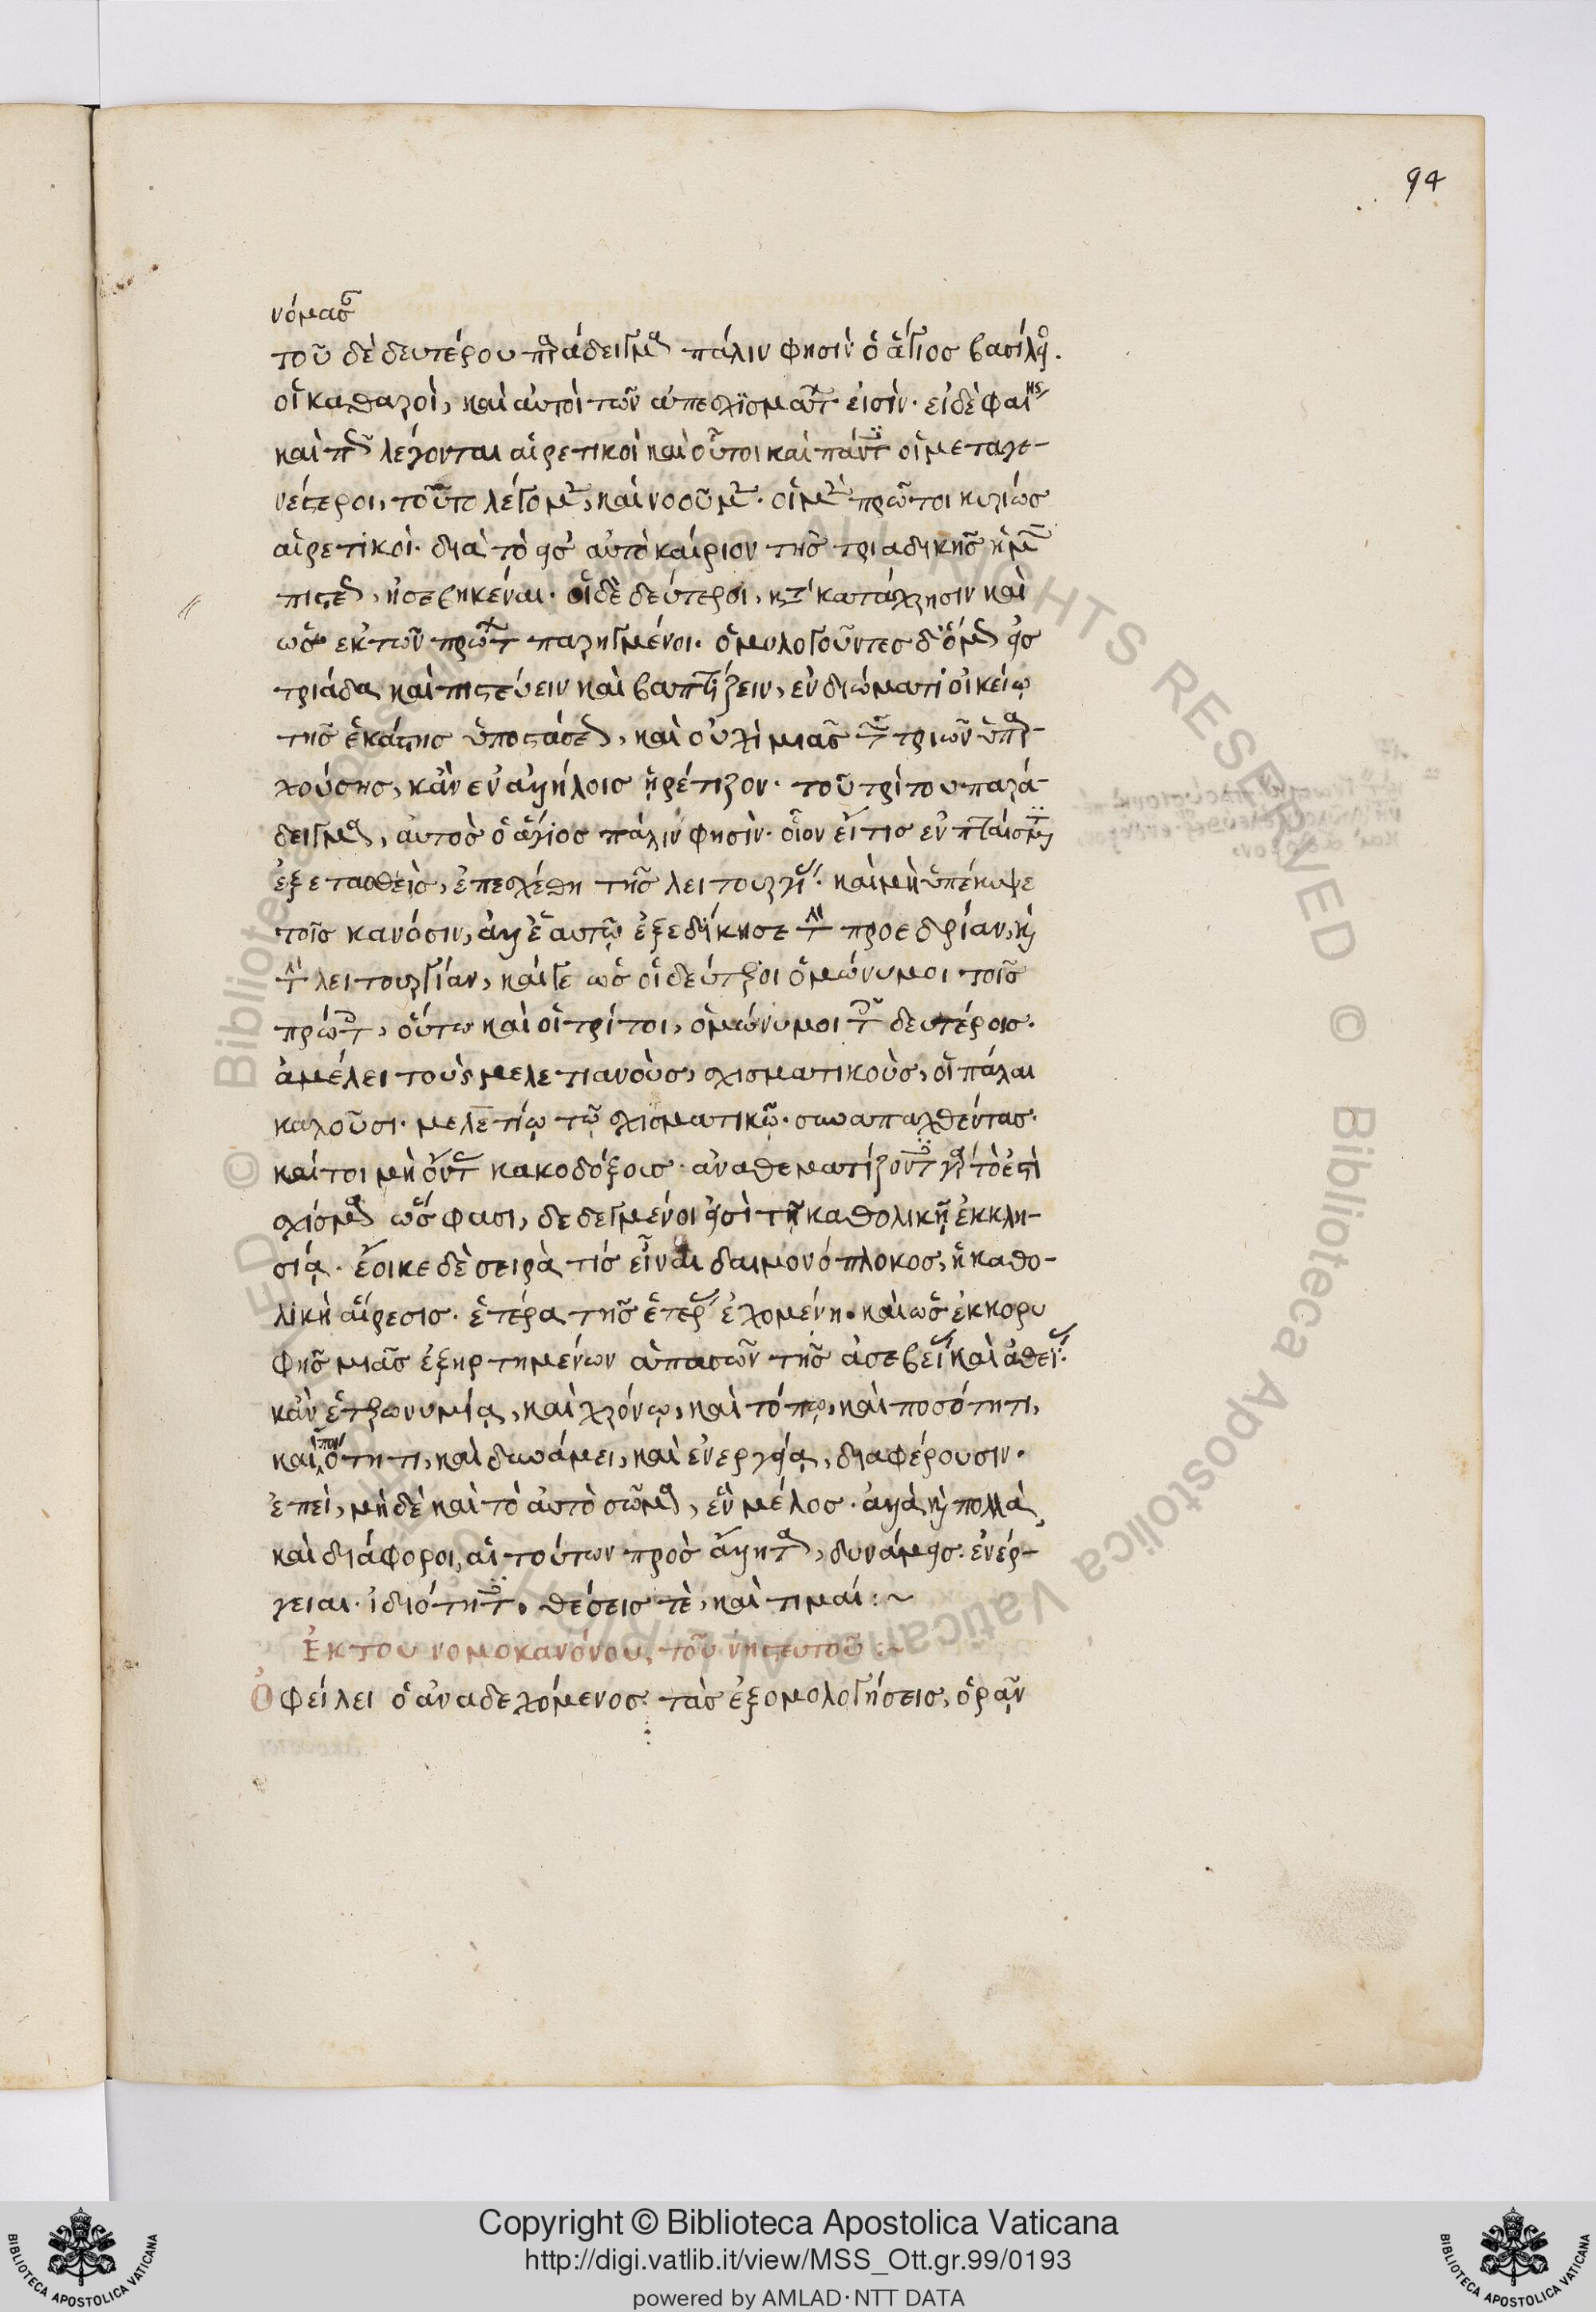 94
νόμασ
τοῦ δὲ δευτέρου παραδείγματος πάλιν φησὶν ὁ ἅγιος βασίλειος.
οἱ καθαροὶ, καὶ αὐτοὶ τῶν ἀπεσχϊσμένων εἰσίν· εἰ δὲ φαίης
καὶ πῶς λέγονται αἱρετικοὶ καὶ οὗτοι καὶ πάντες οἱ μεταγε-
νέστεροι, τοῦτο λέγομεν, καὶ νοοῦμεν· οἱ μὲν πρῶτοι κυρίως
αἱρετικοὶ· διὰ τὸ εἰς αὐτὸ καίριον τῆς τριαδικῆς ἡμῶν
πίστεως, ἠσεβηκέναι· οἱ δὲ δεύτεροι, κατὰ κατάχρησιν καὶ
ὡς ἐκ τῶν πρώτων παρηγμένοι· ὁμολογοῦντες δ' ὅμως εἰς
τριάδα καὶ πιστεύειν καὶ βαπτίζειν, ἐν ἰδιώματι οἰκείῳ
τῆς ἑκάστης ὑποστάσεως, καὶ οὐχὶ μιᾶς τῶν τριῶν ὑπαρ-
χούσης, κἂν ἐν ἀλλήλοις ᾑρέτιζον· τοῦ τρίτου παρα-
δείγματος, αὐτὸς ὁ ἅγιος πάλιν φησὶν· οἷον εἴ τις ἐν πταίσμασι
ἐξετασθεὶς, ἐπεσχέθη τῆς λειτουργίας· καὶ μὴ ὑπέκυψε
τοῖς κανόσιν, ἀλλ' ἑαυτῷ ἐξεδίκησε τὴν προεδρίαν, καὶ
τὴν λειτουργίαν, καίγε ὡς οἱ δεύτεροι ὁμώνυμοι τοῖς
πρώτοις, οὕτω καὶ οἱ τρίτοι, ὁμώνυμοι τοῖς δευτέροις.
ἀμέλει τοὺς μελετιανοὺς, σχισματικοὺς, οἱ πάλαι
καλοῦσι· μελετίῳ τῷ σχισματικῷ· συναπαχθέντας·
καίτοι μὴ ὄντας κακοδόξοις· ἀναθεματίζοντες γὰρ τὸ ἐστὶ
σχίσμα ὥς φασι, δεδεγμένοι εἰσὶ τῇ καθολικῇ ἐκκλη-
σίᾳ· ἔοικε δὲ σειρὰ τὶς εἶναι δαιμονόπλοκος, ἡ καθο-
λικὴ αἵρεσις· ἑτέρα τῆς ἑτέρας ἐχομένη· καὶ ὡς ἐκ κορυ
φῆς μιᾶς ἐξηρτημένων ἁπασῶν τῆς ἀσεβείας καὶ ἀθεΐας·
κἂν ἑτερωνυμίᾳ, καὶ χρόνῳ, καὶ τόπῳ, καὶ ποσότητι,
καὶ ποιότητι, καὶ δυνάμει, καὶ ἐνεργείᾳ, διαφέρουσιν.
ἐπεὶ, μὴ δὲ καὶ τὸ αὐτὸ σῶμα, ἓν μέλος· ἀλλὰ καὶ πολλὰ
καὶ διάφοροι, αἱ τούτων πρὸς ἄλληλα, δυνάμεις· ἐνέρ-
γειαι· ἰδιότητες· θέσεις τὲ, καὶ τιμαί:~
Ἐκ του νομοκανόνου, τοῦ νηστευτοῦ:~
Ὀφείλει ὁ ἀναδεχόμενος τὰς ἐξομολογήσεις, ὁρᾷν
Copyright © Biblioteca Apostolica Vaticana
http://digi.vatlib.it/view/MSS_Ott.gr.99/0193
powered by AMLAD·NTT DATA